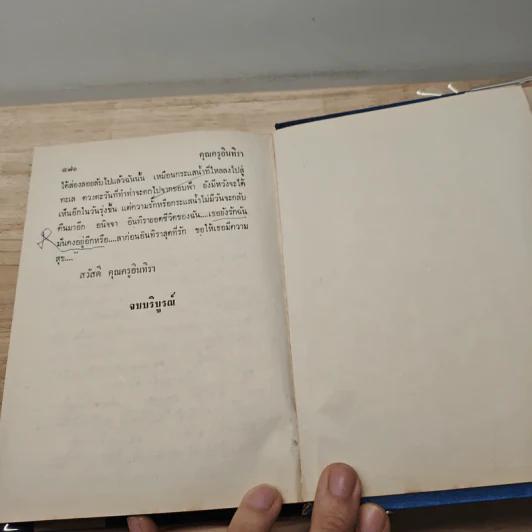 ๕๗๐ คุณครูอินทิรา
ได้ล่องลอยลับไปแล้วฉันนั้น เหมือนกระแสน้ำที่ไหลลงไปสู่
ทะเล ดวงตะวันที่ทำท่าจะตกไปจากขอบฟ้า ยังมีหวังจะได้
เห็นอีกในวันรุ่งขึ้น แต่ความรักหรือกระแสน้ำไม่มีวันจะกลับ
คืนมาอีก อนิจจา อินทิรายอดชีวิตของฉัน....เธอยังรักฉัน
มั่นคงอยู่อีกหรือ....ลาก่อนอินทิราสุดที่รัก ขอให้เธอมีความ
สุข....”
สวัสดิ คุณครูอินทิรา
จบบริบูรณ์